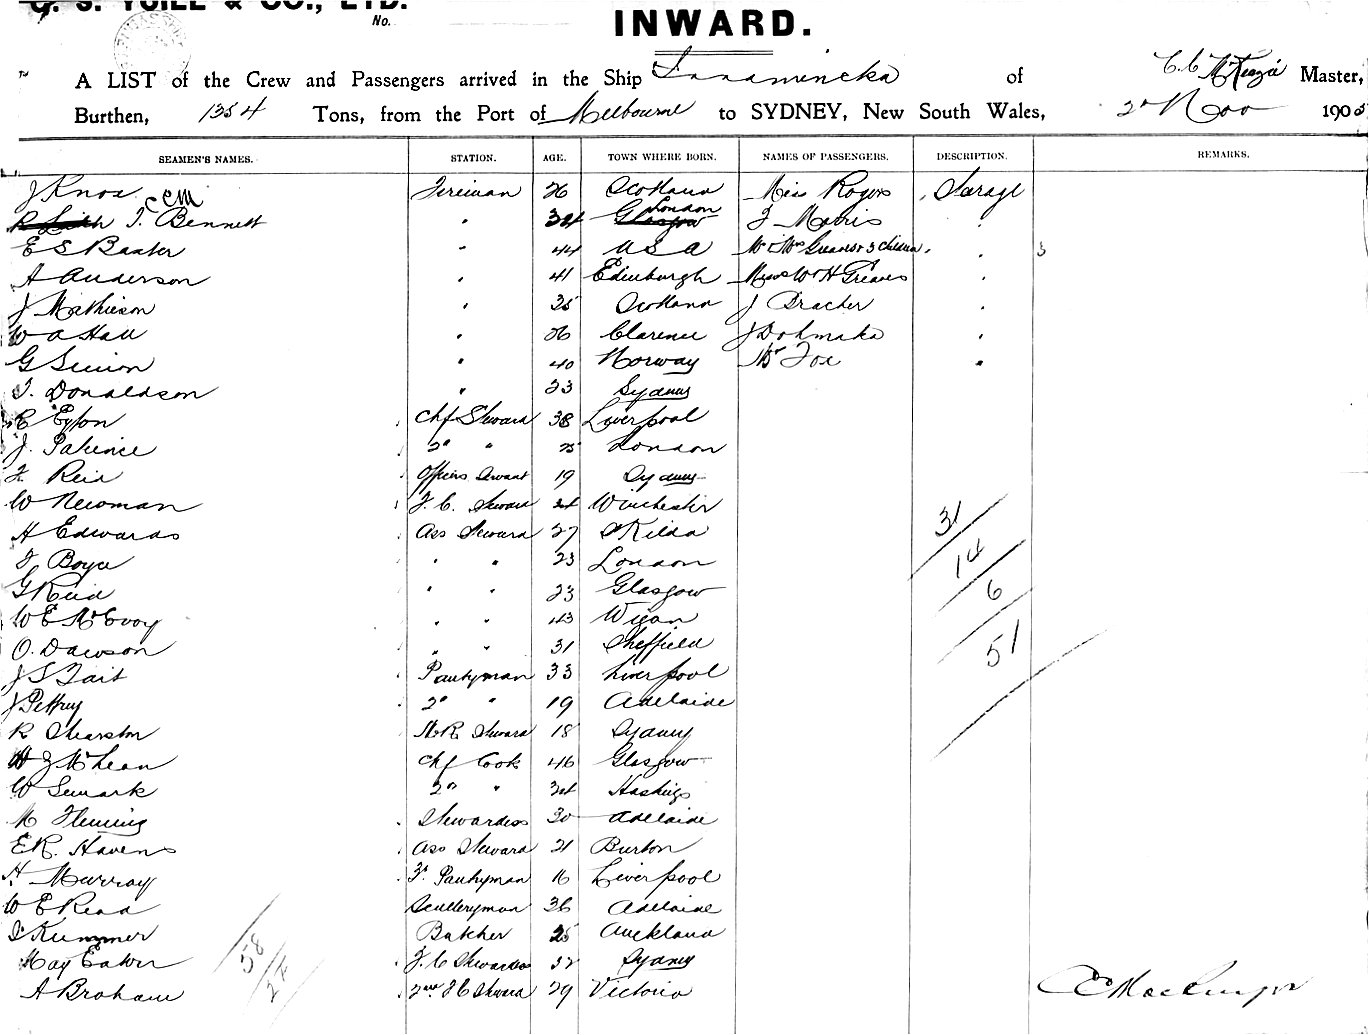 G. S. YUILL & CO., LTD.
No.
INWARD.
A LIST of the Crew and Passengers arrived in the Ship Innamincka of C C McKenzie Master,
Burthen, 1354 Tons, from the Port of Melbourne to SYDNEY, New South Wales, 2d Nov 1905
SEAMEN'S NAMES. STATION. AGE. TOWN WHERE BORN. NAMES OF PASSENGERS. DESCRIPTION. REMARKS.
J Knox Fireman 26 Scotland Miss Rogers Steerage
T. Bennett " 34 London J Morris "
E S Baxter " 44 U S A Mr & Mrs & 3 Children " 3
A Anderson " 41 Edinburgh W H Greaves "
J Mathieson " 35 Scotland J Bracher "
W A Hall " 26 Clarence J "
G Simion " 40 Norway Mr Fox "
T. Donaldson " 23 Sydney
R Eyton Chf Steward 38 Liverpool
J. Patience 2d " 25 London
F. Reid Officers Servant 19 Sydney
W Newman F. C. Steward 24 Winchester
H Edwards Ass Steward 27 St Kilda 31
F Boyce " " 23 London 14
G Reid " " 23 Glasgow 6
W E McEvoy " " 43 Wigan
O. Dawson " " 31 Sheffield 51
J S Tait Pantryman 33 Liverpool
J Peffrey 2d " 19 Adelaide
R Shearston M. R. Steward 18 Sydney
McLean Chf Cook 46 Glasgow
W Semark 2d " 34 Hastings
M Fleming Stewardess 30 Adelaide
E R. Havens Ass Steward 21 Burton
H. Murray 3d Pantryman 16 Liverpool
W E Read Sculleryman 36 Adelaide
Kummer Butcher 25 Auckland
May Eaton F. C Stewardess 32 Sydney 58
A Braham 2nd F C Steward 29 Victoria 24
C C MacKenzie